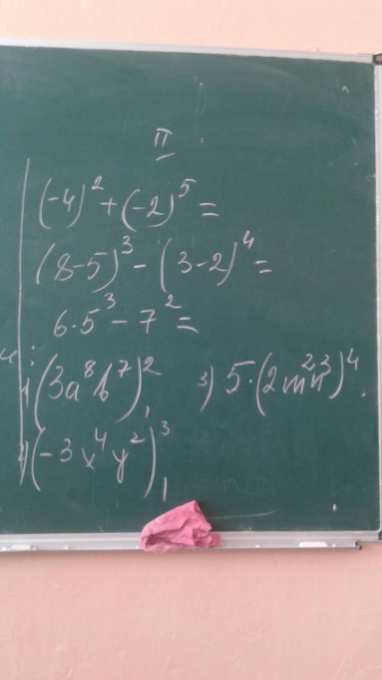 II
(-4)² + (-2)⁵ =
(8-5)³ - (3-2)⁴ =
6·5³ - 7² =
1) (3a⁸b⁷)², 3) 5·(2m²n³)⁴.
2) (-3x⁴y²)³,